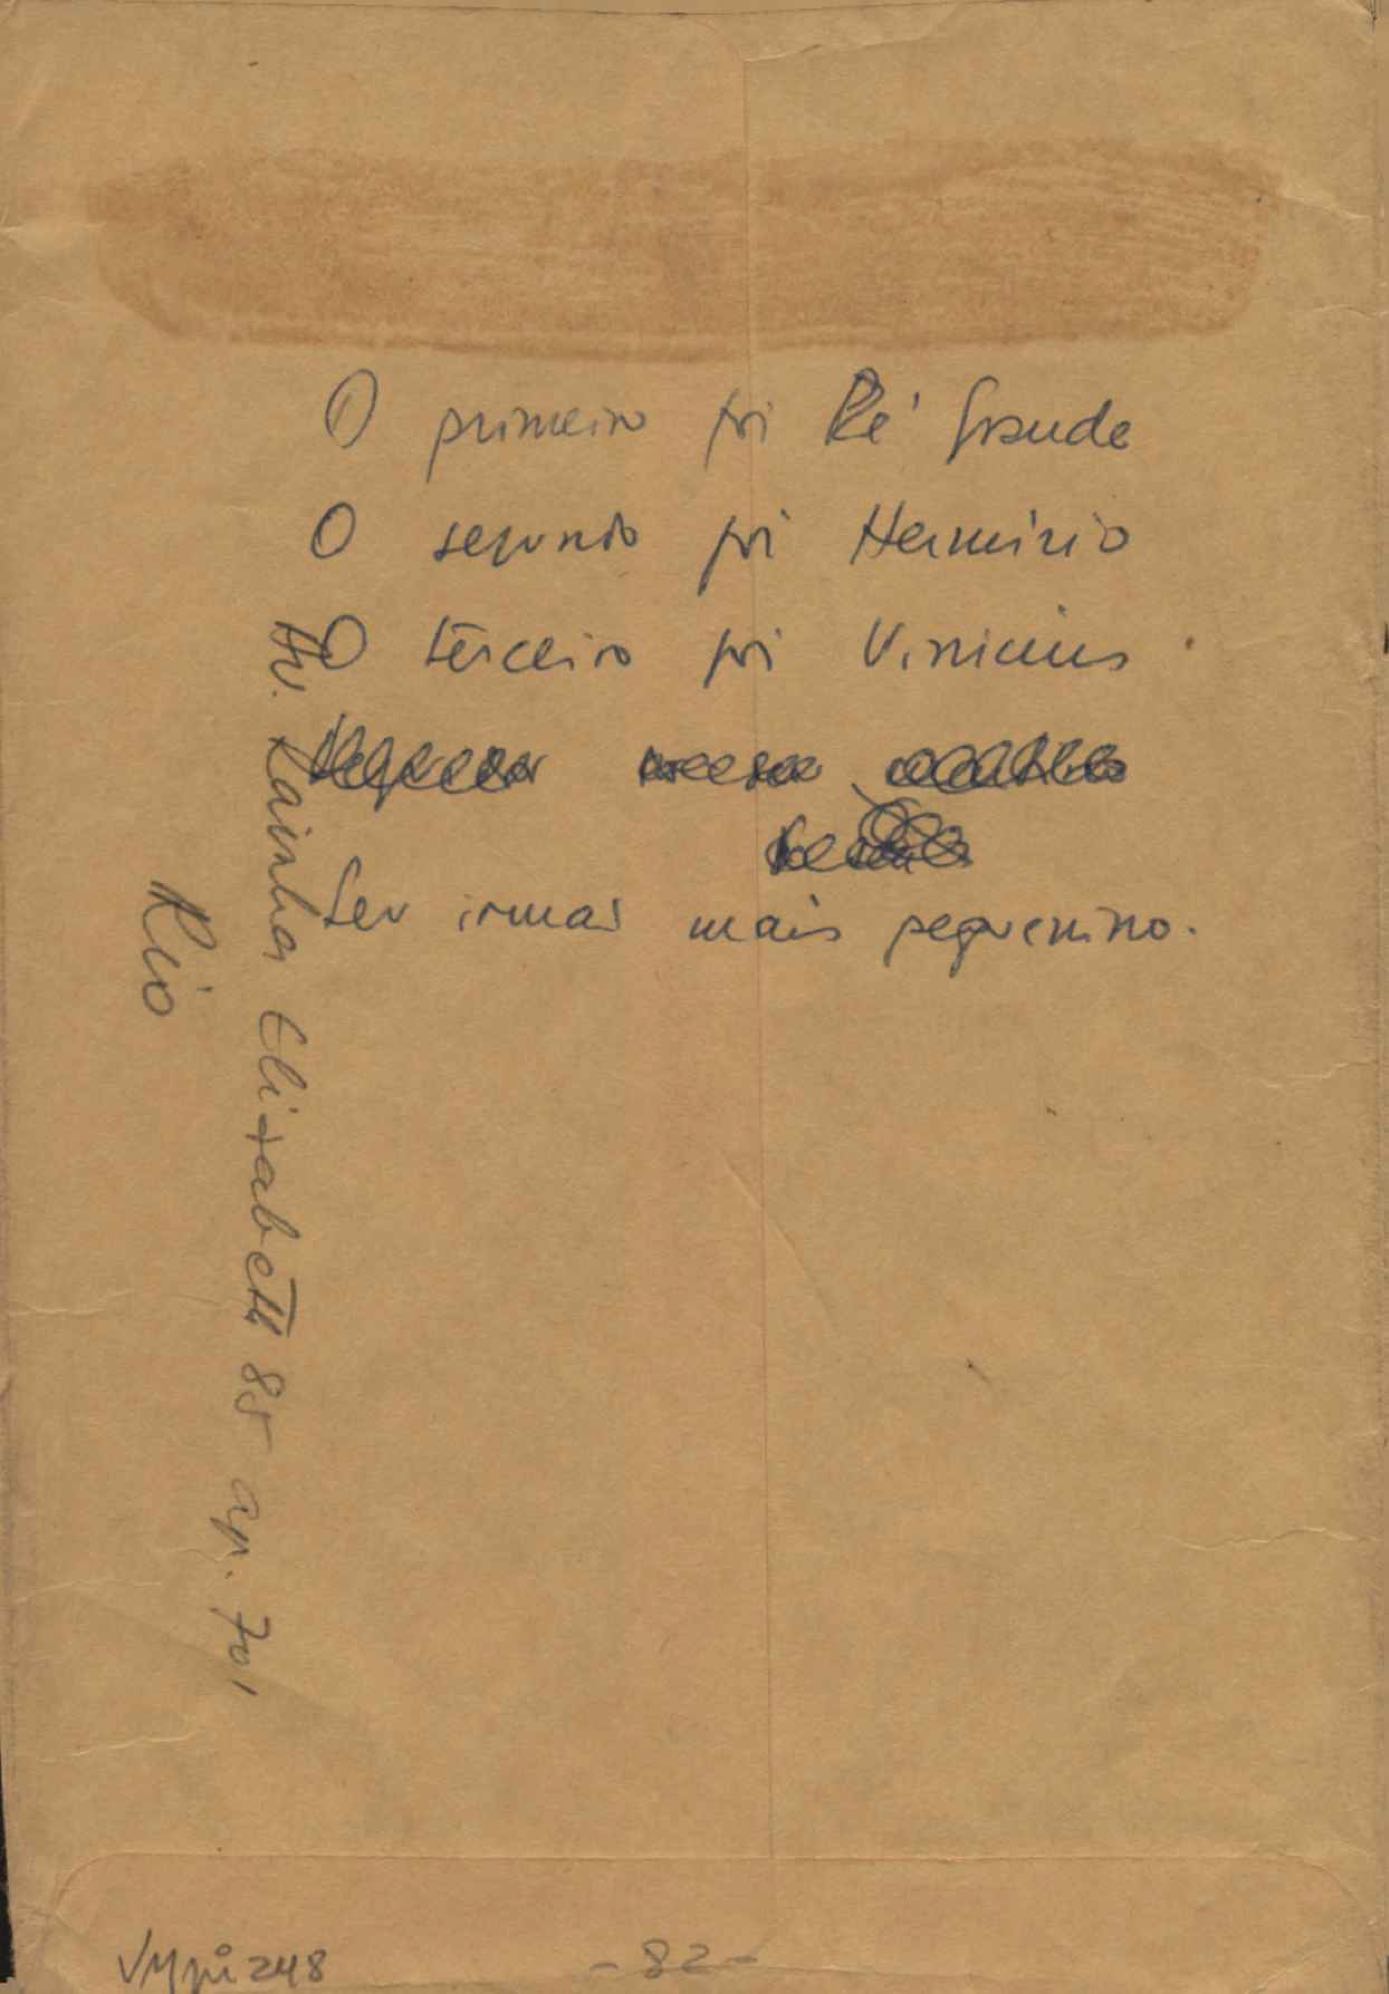 O primeiro foi Pé Grande
O segundo foi Hermínio
O terceiro foi Vinicius
Seu irmão mais pequenino.
Av. Rainha Elizabeth 85 ap. 701
Rio
VMpi 248
-82-